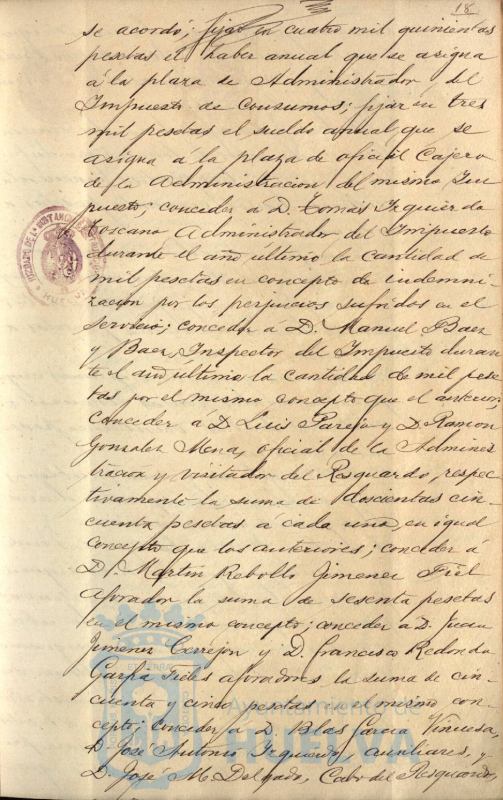 18
se acordó; fijar en cuatro mil quinientas
pesetas el haber anual que se asigna
á la plaza de Administrador del
Impuesto de Consumos; fijar en tres
mil pesetas el sueldo anual que se
asigna á la plaza de oficial Cajero
de la Administracion del mismo Im-
puesto; conceder á D. Tomás Izquierdo
Toscano Administrador del Impuesto
durante el año ultimo la cantidad de
mil pesetas en concepto de indemni-
zacion por los perjuicios sufridos en el
servicio; conceder á D. Manuel Baez
y Baez, Inspector del Impuesto duran-
te el año ultimo la cantidad de mil pese
tas por el mismo concepto que el anterior;
conceder á D. Luis Parejo y D. Ramon
Gonzalez Mena, oficial de la Adminis
tracion y visitador del Resguardo, respec-
tivamente la suma de doscientas cin-
cuenta pesetas a cada uno, en igual
concepto que los anteriores; conceder á
D. Martin Rebollo Jimenez Fiel
aforador la suma de sesenta pesetas
en el mismo concepto; conceder a D. Juan
Jimenez Carrejon y D. Francisco Redondo
Garfia Fieles aforadores la suma de cin-
cuenta y cinco pesetas en el mismo con-
cepto; conceder a D. Blas Garcia Vinuesa,
D. José Antonio Izquierdo, auxiliares, y
D. José M. Delgado, Cabo del Resguardo,
Ayuntamiento de
HUELVA